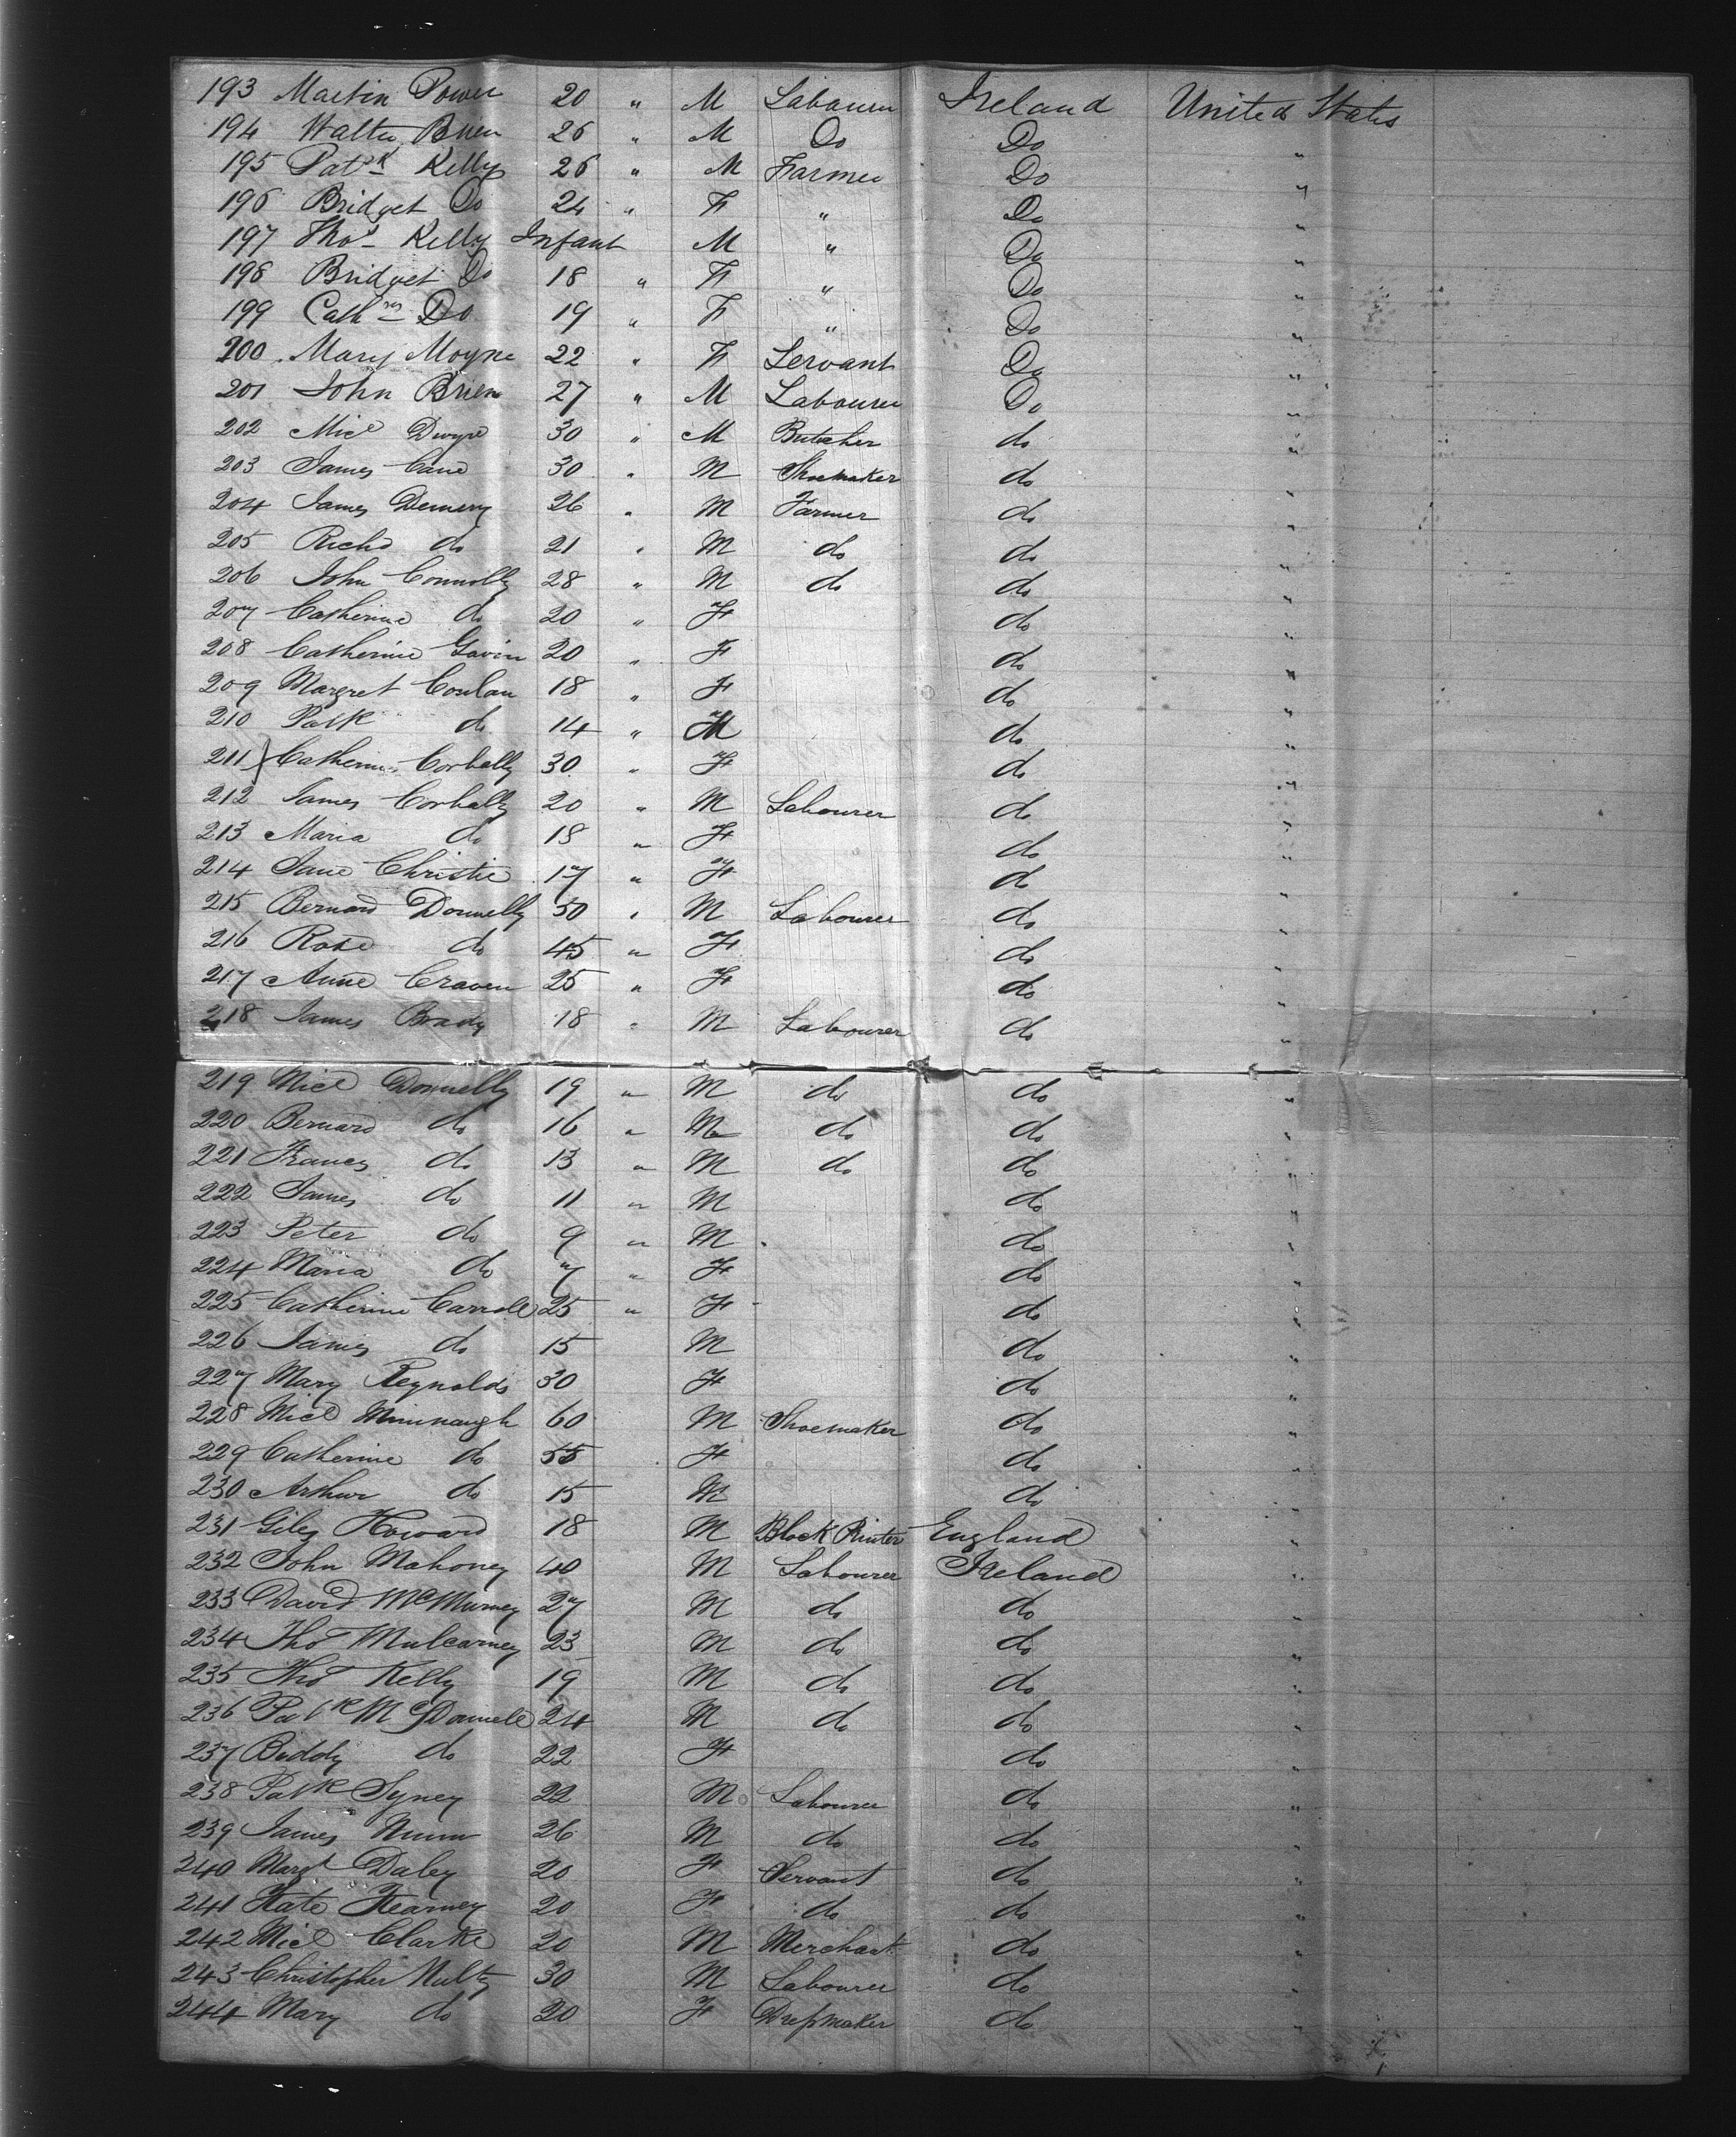 193 Martin Power 20 " M Labourer Ireland United States
194 Walter Brien 26 " M Do Do "
195 Patk Kelly 26 " M Farmer Do "
196 Bridget Do 24 " F " Do "
197 Thos Kelly Infant M " Do "
198 Bridget Do 18 " F " Do "
199 Cathn Do 19 " F " Do "
200 Mary Moyne 22 " F Servant Do "
201 John Brien 27 " M Labourer Do "
202 Micl Dwyre 30 " M Butcher do "
203 James Cane 30 " M Shoemaker do "
204 James Demery 26 " M Farmer do "
205 Richd do 21 " M do do "
206 John Connolly 28 " M do do "
207 Catherine do 20 " F do "
208 Catherine Gavin 20 " F do "
209 Margret Conlan 18 " F do "
210 Patk do 14 " M do "
211 Catherine Corbally 30 " F do "
212 James Corbally 20 " M Labourer do "
213 Maria do 18 " F do "
214 Jane Christie 17 " F do "
215 Bernard Donnelly 50 " M Labourer do "
216 Rose do 45 " F do "
217 Anne Craven 25 " F do "
218 James Brady 18 " M Labourer do "
219 Micl Donnelly 19 " M do do "
220 Bernard do 16 " M do do "
221 Francis do 13 " M do do "
222 James do 11 " M do "
223 Peter do 9 " M do "
224 Maria do 7 " F do "
225 Catherine Carroll 25 " F do "
226 James do 15 M do "
227 Mary Reynolds 30 F do "
228 Micl Minnaugh 60 M Shoemaker do "
229 Catherine do 55 F do "
230 Arthur do 15 M do "
231 Giles Howard 18 M Block Printer England "
232 John Mahoney 40 M Labourer Ireland "
233 David McMurney 27 M do do "
234 Thos Mulcarney 23 M do do "
235 Thos Kelly 19 M do do "
236 Patk McDonnell 24 M do do "
237 Biddy do 22 F do "
238 Patk Syney 22 M Labourer do "
239 James Nunn 26 M do do "
240 Margt Daley 20 F Servant do "
241 Kate Kearney 20 F do do "
242 Micl Clarke 20 M Merchant do "
243 Christopher Nulty 30 M Labourer do "
244 Mary do 20 F Dressmaker do "